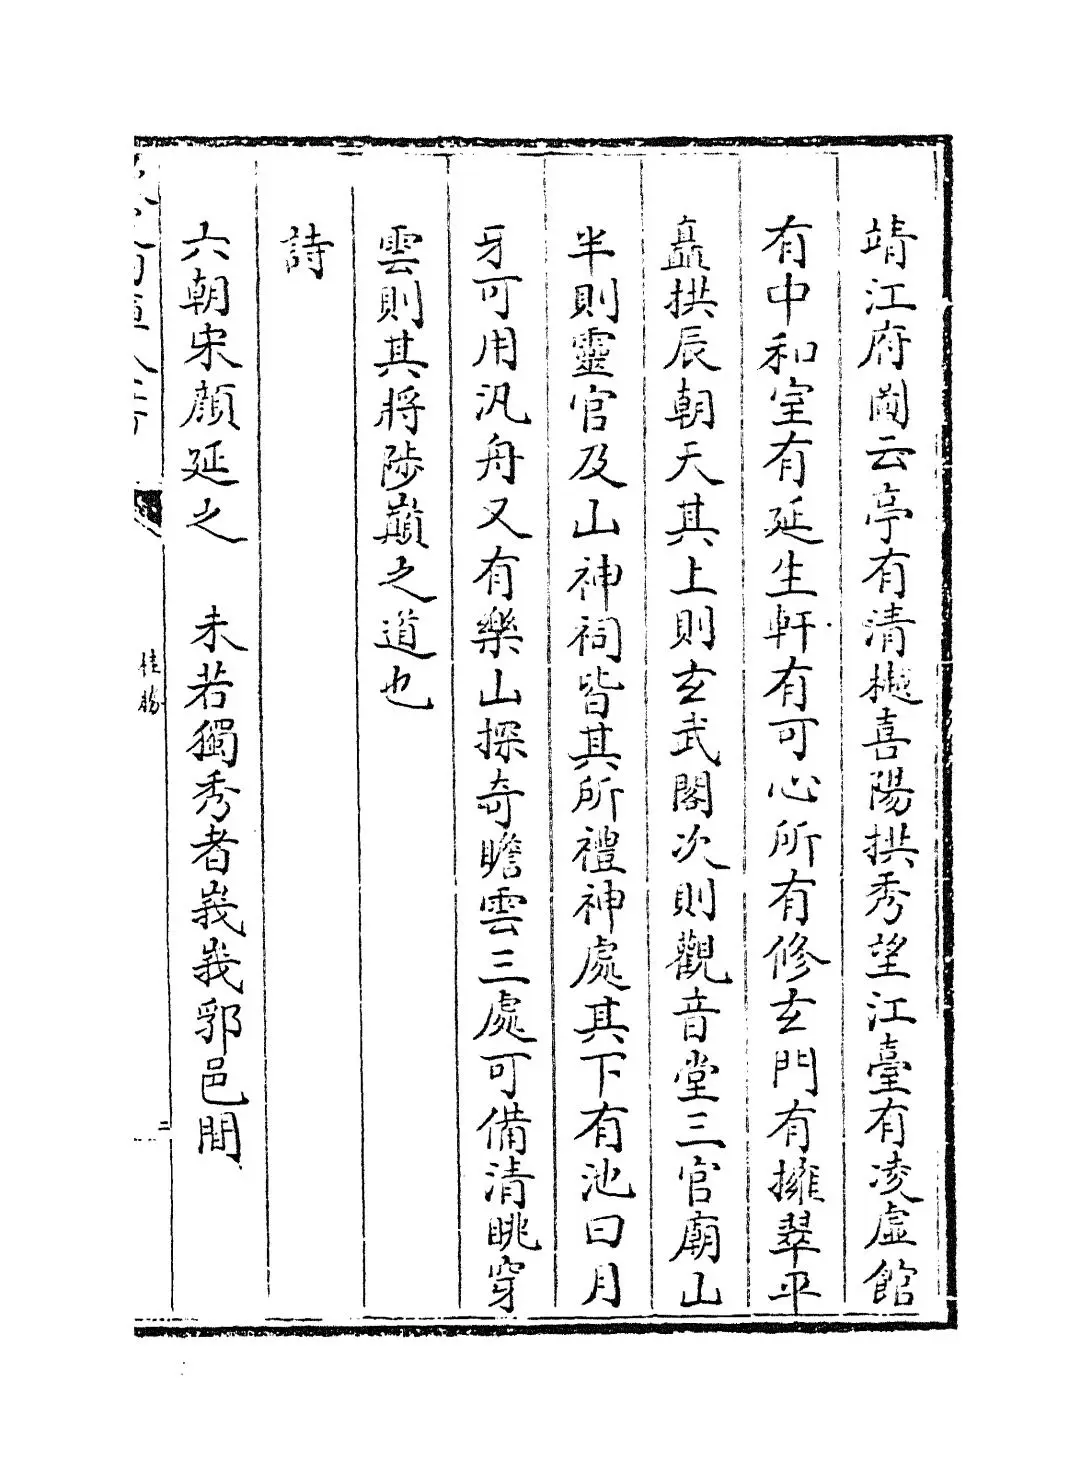 靖江府閫云亭有清樾喜陽拱秀望江臺有凌虛館
有中和室有延生軒有可心所有修玄門有擁翠平
矗拱辰朝天其上則玄武閣次則觀音堂三官廟山
半則靈官及山神祠皆其所禮神處其下有池曰月
牙可用汎舟又有樂山探奇瞻雲三處可備清眺穿
雲則其將陟巔之道也
詩
六朝宋顔延之　未若獨秀者峩峩郛邑間
桂勝
二